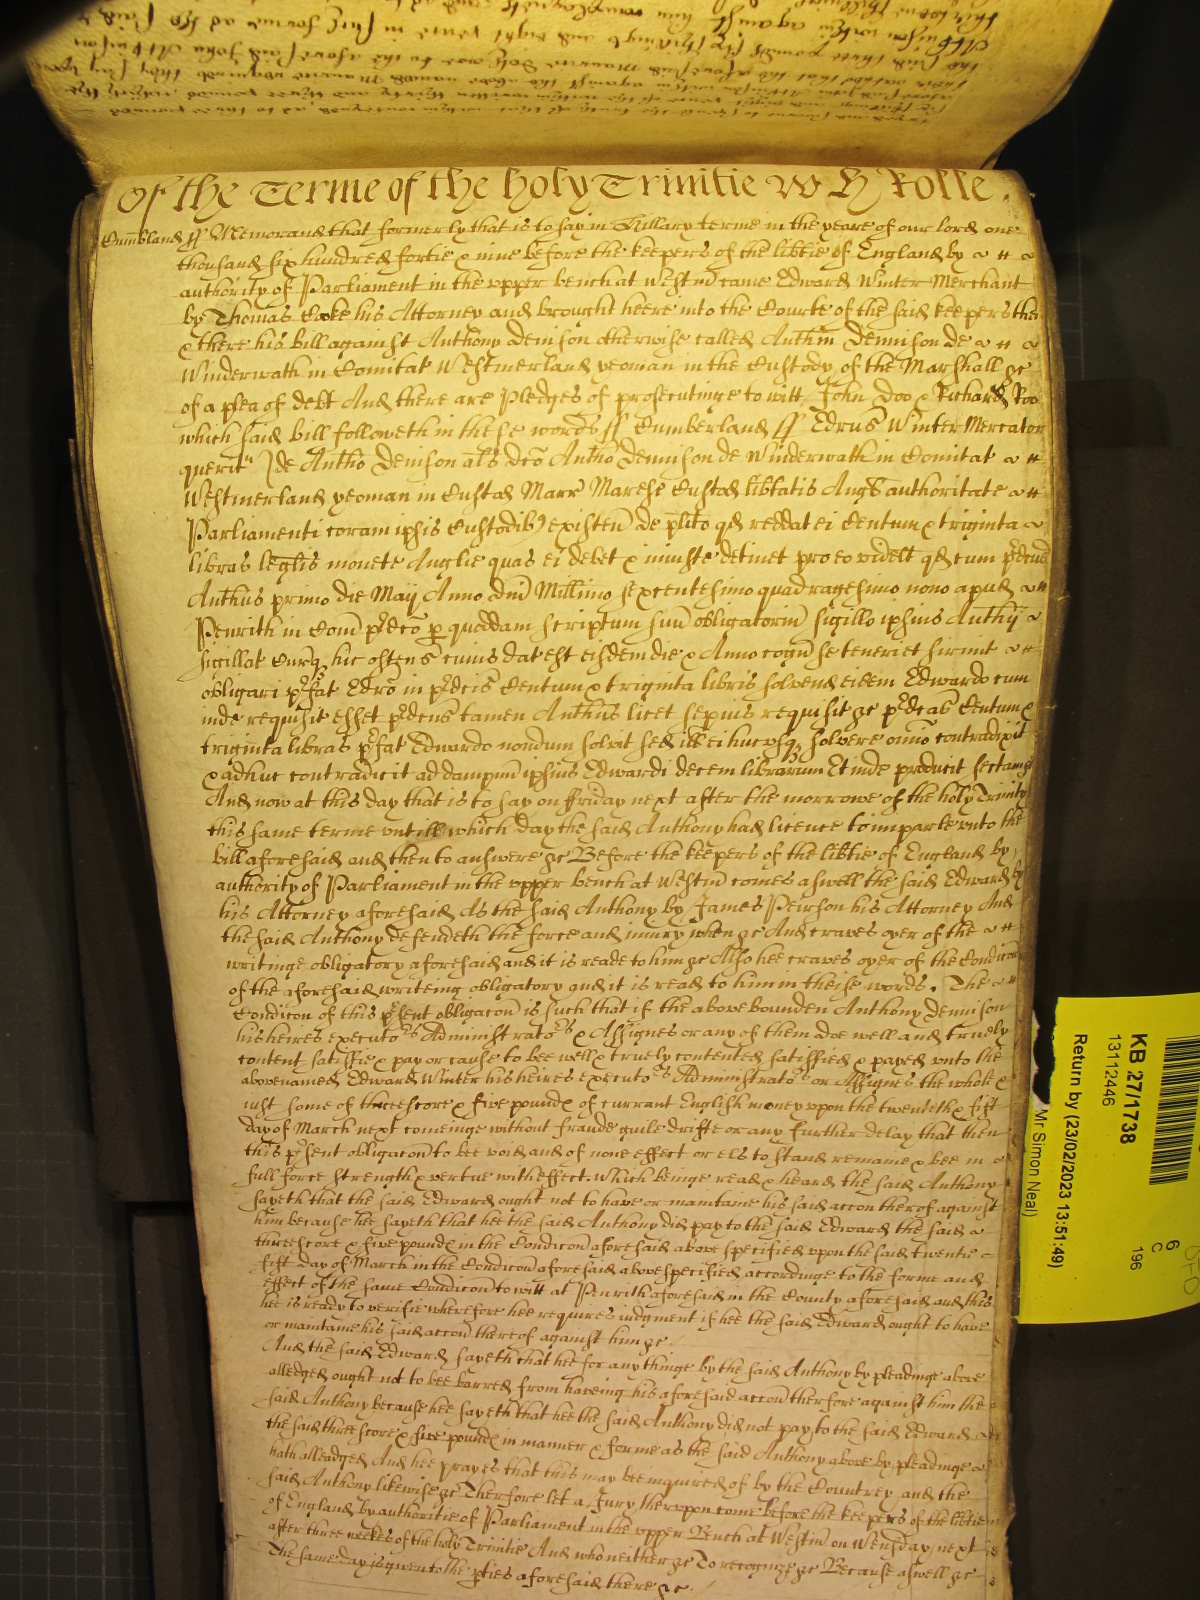 Of the Terme of the holy Trinitie w H Rolle.
Cumbland ss Memorand that formerly that is to say in Hillary terme in the yeare of our lord one
thousand six hundred fortie & nine before the keepers of the libtie of England by
authority of Parliament in the upper bench at Westm came Edward Winter Merchant
by Thomas Cooke his Attorney and brought heere into the Courte of the said keepers then
& there his bill against Anthony Denison otherwise called Anthm Dennison de
Winderwath in Comitat Westmerland yeoman in the Custody of the Marshall &c
of a plea of debt And there are Pledges of prosecutinge to witt John Doo & Richard Roo
which said bill followeth in these words ss Cumberland ss Edrus Winter Mercator
querit de Antho Denison als dco Antho Dennison de Winderwath in Comitat
Westmerland yeoman in Custod Marr Marese Custod libtatis Angl authoritate
Parliamenti coram ipsis Custodib existen de plito qd reddat ei Centum & triginta
libras leglis monete Anglie quas ei debet & iniuste detinet pro eo videlt qd cum pdcus
Anthus primo die Maij Anno dni Millimo sexcentesimo quadragesimo nono apud
Penrith in Com pdco p quoddam scriptum suu obligatorim sigillo ipsius Anthij
sigillat Curq hic ostens cuius dat est eisdem die & Anno cogn se teneri et firmit
obligari pfat Edro in pdcis Centum & triginta libris solvend eidem Edwardo cum
inde requisit esset pdcus tamen Anthus licet sepius requisit &c pdcas Centum &
triginta libras pfat Edwardo nondum solvit sed ill ei hucusq solvere omno contradixit
& adhuc contradicit ad dampnu ipsius Edwardi decem librarum Et inde producit sectam &c
And now at this day that is to say on ffriday next after the morrowe of the holy Trinity
this same terme untill which day the said Anthony had licence to imparle unto the
bill aforesaid and then to answere &c Before the keepers of the libtie of England by
authority of Parliament in the upper bench at Westm comes aswell the said Edward by
his Attorney aforesaid As the said Anthony by James Peirson his Attorney And
the said Anthony defendeth the force and iniury when &c And craves oyer of the
writinge obligatory aforesaid and it is reade to him &c Also hee craves oyer of the Condicon
of the aforesaid writeing obligatory and it is read to him in theise words. The
Condicon of this psent obligacon is such that if the above bounden Anthony Dennison
his heires executors Administrators & Assignes or any of them doe well and truely
content satisfie & pay or cause to bee well & truely contented satisfied & payed unto the
abovenamed Edward Winter his heires executors Administrators or Assignes the whole &
iust some of threescore & five pounds of currant English money uppon the twenteth & fift
day of March next comeinge without fraude guile drifte or any further delay that then
this psent obligacon to bee void and of none effect or els to stand remaine & bee in
full force strength & vertue with effect. Which beinge read & heard the said Anthony
sayeth that the said Edward ought not to have or maintaine his said accon therof against
him because hee sayeth that hee the said Anthony did pay to the said Edward the said
threescore & five pounds in the Condicon aforesaid above specified uppon the said twentie
fift day of March in the Condicon aforesaid above specified accordinge to the forme and
effect of the same Condicon to witt at Penrith aforesaid in the County aforesaid and this
hee is ready to verifie wherefore hee requires iudgment if hee the said Edward ought to have
or maintaine his said accon thereof against him &c.
And the said Edward sayeth that hee for any thinge by the said Anthony by pleadinge above
alledged ought not to bee barred from haveing his aforesaid accon therfore against him the
said Anthony because hee sayeth that hee the said Anthony did not pay to the said Edward
the said threescore & five pounds in manner & forme as the said Anthony above by pleadinge
hath alleadged And hee prayes that this may bee inquired of by the Countrey and the
said Anthony likewise &c Therfore let a Jury therupon come before the keepers of the libtie
of England by authoritie of Parliament in the upper Bench at Westm on Wensday next
after three weekes of the holy Trinitie And who neither &c To recognize &c Because aswell &c
The same day is given to the pties aforesaid there &c.
KB 27/1738
13112446
Return by (23/02/2023 13:51:49)
Mr Simon Neal)
6
C
196